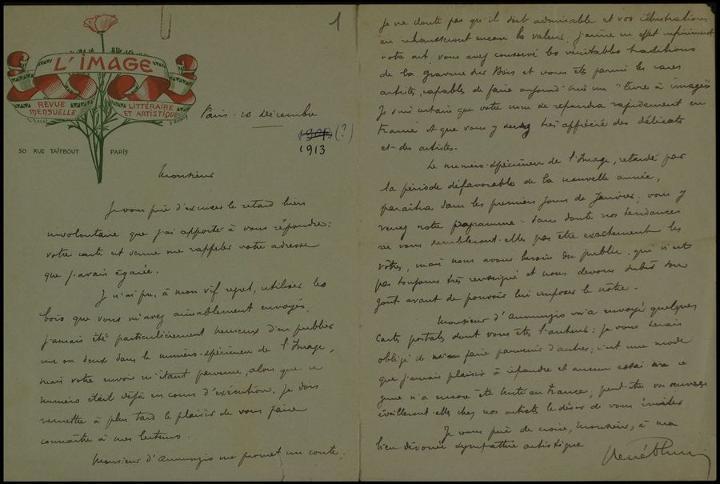 1
L'IMAGE
REVUE MENSUELLE
LITTÉRAIRE ET ARTISTIQUE
50 RUE TAITBOUT PARIS
Paris - 20 Décembre
(?)
1913
Monsieur
Je vous prie d'excuser le retard bien
involontaire que j'ai apporté à vous répondre:
votre carte est venue me rappeler votre adresse
que j'avais égarée.
Je n'ai pu, à mon vif regret, utiliser les
bois que vous m'avez aimablement envoyés.
J'aurais été particulièrement heureux d'en publier
un ou deux dans le numéro-spécimen de l'Image,
mais votre envoi m'étant parvenu, alors que ce
numéro était déjà en cours d'exécution, je dois
remettre à plus tard le plaisir de vous faire
connaître à mes lecteurs.
Monsieur d'Annunzio me promet un conte.
je ne doute pas qu'il soit admirable et vos illustrations
en rehausseront encore la valeur. J'aime en effet infiniment
votre art, vous avez conservé les véritables traditions
de la gravure sur Bois et vous êtes parmi les rares
artistes capables de faire aujourd'hui un "livre à images".
Je suis certain que votre se répandra rapidement en
France et que vous y serez très apprécié des délicats
et des artistes.
Le numéro-spécimen de l'Image, retardé par
la période défavorable de la nouvelle année,
paraîtra dans les premiers jours de Janvier; vous y
verrez notre programme - sans doute nos tendances
ne vous sembleront-elles pas être exactement les
vôtres, mais nous avons besoin du public qui n'est
pas toujours très renseigné et nous devons subir son
goût avant de pouvoir lui imposer le nôtre.
Monsieur d'Annunzio m'a envoyé quelques
cartes postales dont vous êtes l'auteur: je vous serais
obligé de m'en faire parvenir d'autres; c'est une mode
que j'aurais plaisir à répandre et aucun essai de ce
genre n'a encore été tenté en France, peut-être vos ouvrages
éveilleront-elles chez nos artistes le désir de vous imiter
Je vous prie de croire, Monsieur, à ma
bien dévouée sympathie artistique